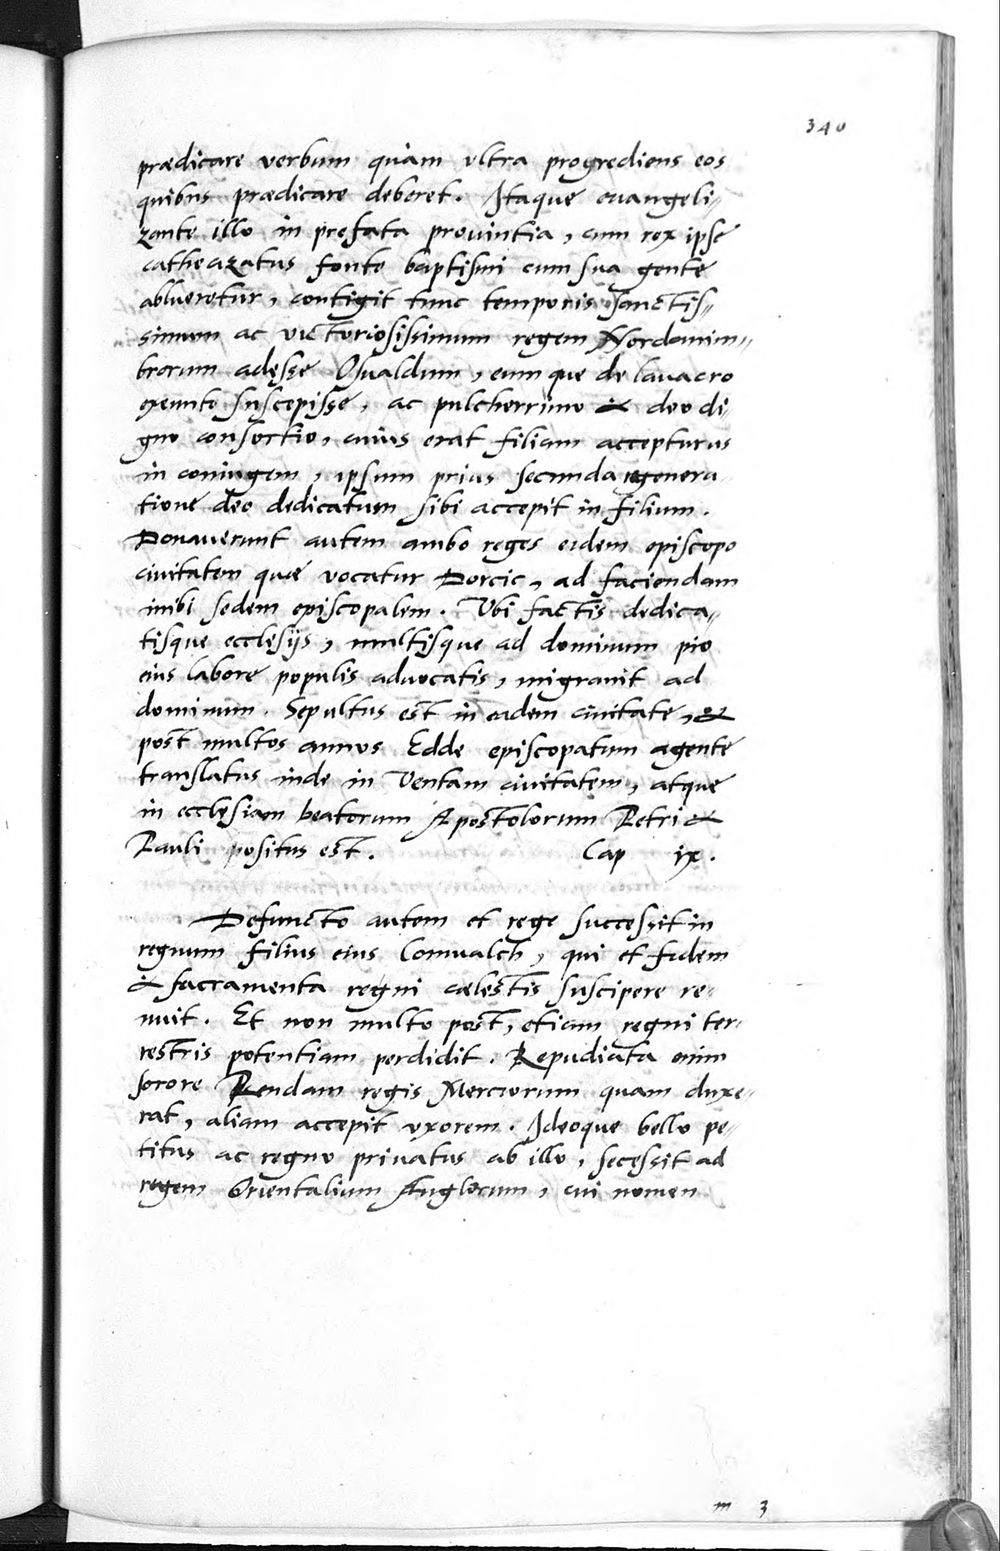 340
prædicare verbum quam vltra progrediens eos
quibus prædicare deberet. Itaque euangeli-
zante illo in prefata prouintia, cum rex ipse
cathecizatus fonte baptismi cum sua gente
ablueretur, contigit tunc temporis sanctis-
simum ac victoriosissimum regem Nordanim-
brorum adesse Osualdum, eumque de lauacro
exeunte suscepisse, ac pulcherrimo & deo di-
gno consortio, cuius erat filiam accepturus
in coniugem, ipsum prius secunda regenera-
tione deo dedicatum sibi accepit in filium.
Donauerunt autem ambo reges eidem episcopo
ciuitatem quæ vocatur Dorcic, ad faciendam
inibi sedem episcopalem. Vbi factis dedica-
tisque ecclesijs, multisque ad dominum pio
eius labore populis aduocatis, migrauit ad
dominum. Sepultus est in eadem ciuitate, &
post multos annos Edde episcopatum agente
translatus inde in Ventam ciuitatem, atque
in ecclesiam beatorum Apostolorum Petri &
Pauli positus est. Cap ix.
Defuncto autem et rege successit in
regnum filius eius Comualch, qui et fidem
& sacramenta regni cælestis suscipere re-
nuit. Et non multo post, etiam regni ter-
restris potentiam perdidit. Repudiata enim
sorore Pendam regis Merciorum quam duxe-
rat, aliam accepit vxorem. Ideoque bello pe-
titus ac regno priuatus ab illo, secessit ad
regem Orientalium Anglorum, cui nomen
m 3